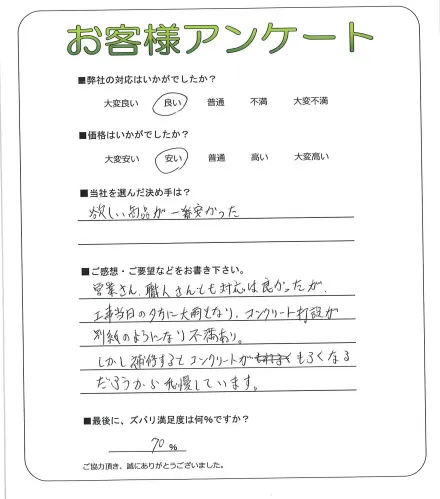 お客様アンケート
■弊社の対応はいかがでしたか？
大変良い 良い 普通 不満 大変不満
■価格はいかがでしたか？
大変安い 安い 普通 高い 大変高い
■当社を選んだ決め手は？
欲しい商品が一番安かった
■ご感想・ご要望などをお書き下さい。
営業さん、職人さんとも対応は良かったが、
工事当日の夕方に大雨となり、コンクリート打設が
別紙のようになり不満あり。
しかし補修するとコンクリートがもろくなる
だろうから我慢しています。
■最後に、ズバリ満足度は何%ですか？
70 %
ご協力頂き、誠にありがとうございました。